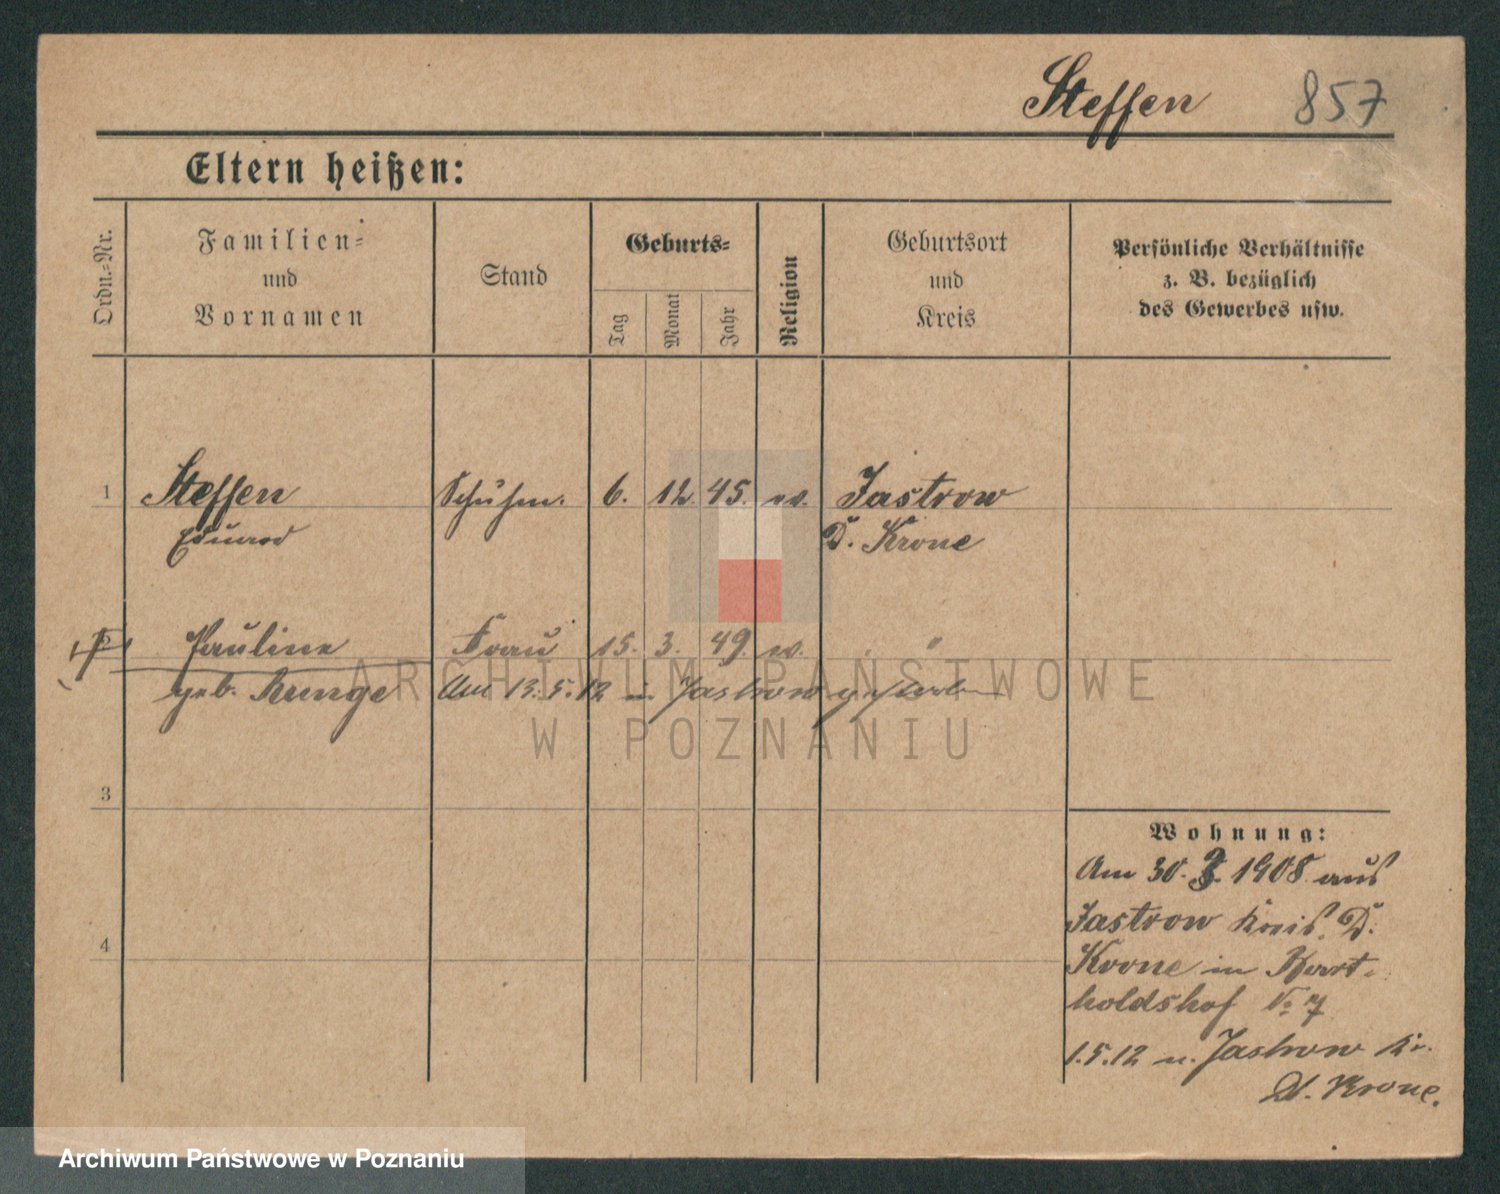 Steffen 857
Eltern heißen:
Ordn.-Nr.
Familien-
und
Vornamen
Stand
Geburts-
Tag
Monat
Jahr
Religion
Geburtsort
und
Kreis
Persönliche Verhältnisse
z. B. bezüglich
des Gewerbes usw.
1 Steffen Schuhm. 6. 12. 45. Jastrow
Eduard D. Krone
2 Pauline Frau 15. 3. 49. "
geb. Runge Am 13. 5. 12 in Jastrow gestorben
3
4
Wohnung:
Am 30. 1908 aus
Jastrow Kreis D.
Krone in Bart-
holdshof No 7
1.5.12 n. Jastrow Kr.
Dt. Krone.
ARCHIWUM PAŃSTWOWE
W POZNANIU
Archiwum Państwowe w Poznaniu